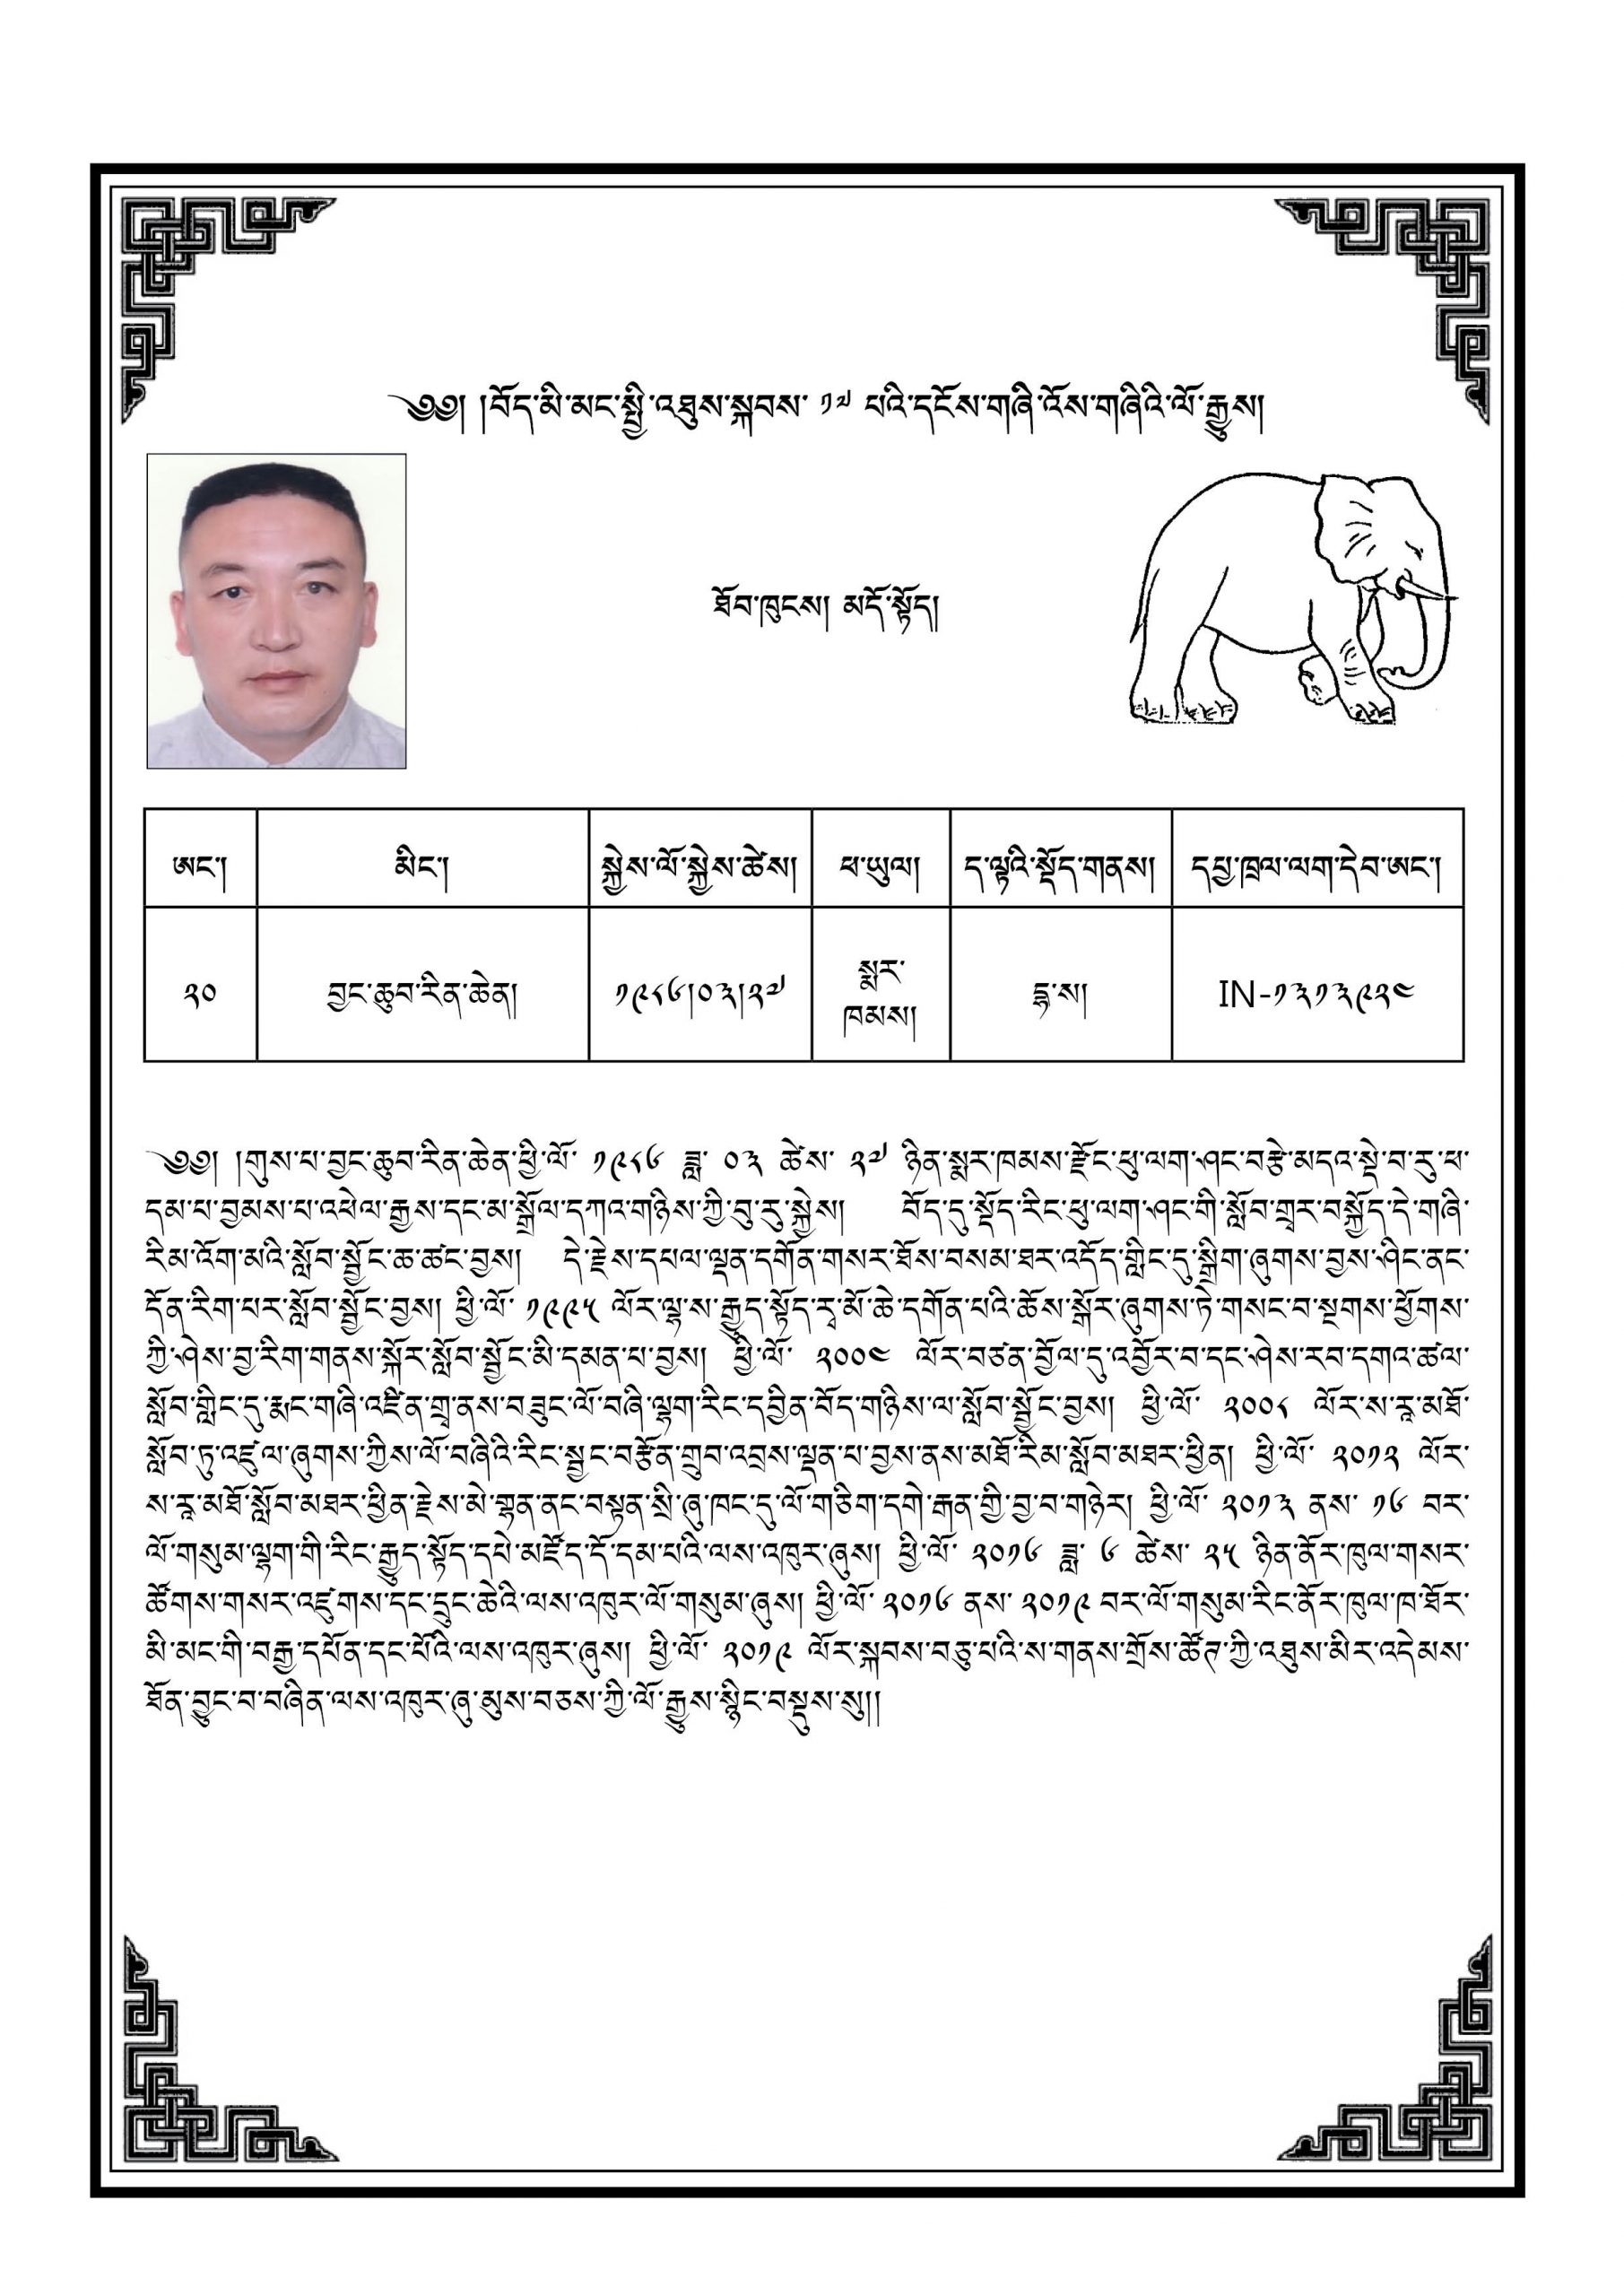 ༄༅། །བོད་མི་མང་སྤྱི་འཐུས་སྐབས་ ༡༧ པའི་དངོས་གཞི་འོས་གཞིའི་ལོ་རྒྱུས།
ཐོབ་ཁུངས། མདོ་སྟོད།
ཨང་། མིང་། སྐྱེས་ལོ་སྐྱེས་ཚེས། ཕ་ཡུལ། ད་ལྟའི་སྡོད་གནས། དཔྱ་ཁྲལ་ལག་དེབ་ཨང་།
༢༠ བྱང་ཆུབ་རིན་ཆེན། ༡༩༨༦།༠༣།༢༧ སྨར་ཁམས། དྷ་ས། IN-༡༣༡༣༩༢༤
༄༅། །གུས་པ་བྱང་ཆུབ་རིན་ཆེན་ཕྱི་ལོ་ ༡༩༨༦ ཟླ་ ༠༣ ཚེས་ ༢༧ ཉིན་སྨར་ཁམས་རྫོང་ཕུ་ལག་ཤང་བརྩེ་མདའ་སྡེ་བ་རུ་ཕ་
དམ་པ་བྱམས་པ་འཕེལ་རྒྱས་དང་མ་སྒྲོལ་དཀའ་གཉིས་ཀྱི་བུ་རུ་སྐྱེས། བོད་དུ་སྡོད་རིང་ཕུ་ལག་ཤང་གི་སློབ་གྲྭར་བསྐྱོད་དེ་གཞི་
རིམ་འོག་མའི་སློབ་སྦྱོང་ཆ་ཚང་བྱས། དེ་རྗེས་དཔལ་ལྡན་དགོན་གསར་ཐོས་བསམ་ཐར་འདོད་གླིང་དུ་སྒྲིག་ཞུགས་བྱས་ཤིང་ནང་
དོན་རིག་པར་སློབ་སྦྱོང་བྱས། ཕྱི་ལོ་ ༡༩༩༥ ལོར་ལྷ་ས་རྒྱུད་སྟོད་རྭ་མོ་ཆེ་དགོན་པའི་ཆོས་སྒོར་ཞུགས་ཏེ་གསང་བ་སྔགས་ཕྱོགས་
ཀྱི་ཤེས་བྱ་རིག་གནས་སྐོར་སློབ་སྦྱོང་མི་དམན་པ་བྱས། ཕྱི་ལོ་ ༢༠༠༤ ལོར་བཙན་བྱོལ་དུ་འབྱོར་བ་དང་ཤེས་རབ་དགའ་ཚལ་
སློབ་གླིང་དུ་རྨང་གཞི་འཛིན་གྲྭ་ནས་བཟུང་ལོ་བཞི་ལྷག་རིང་དབྱིན་བོད་གཉིས་ལ་སློབ་སྦྱོང་བྱས། ཕྱི་ལོ་ ༢༠༠༨ ལོར་ས་རཱ་མཐོ་
སློབ་ཏུ་འཛུལ་ཞུགས་ཀྱིས་ལོ་བཞིའི་རིང་སྦྱང་བརྩོན་གྲུབ་འབྲས་ལྡན་པ་བྱས་ནས་མཐོ་རིམ་སློབ་མཐར་ཕྱིན། ཕྱི་ལོ་ ༢༠༡༢ ལོར་
ས་རཱ་མཐོ་སློབ་མཐར་ཕྱིན་རྗེས་མེ་གྷན་ནང་བསྟན་སྲི་ཞུ་ཁང་དུ་ལོ་གཅིག་དགེ་རྒན་གྱི་བྱ་བ་གཉེར། ཕྱི་ལོ་ ༢༠༡༣ ནས་ ༡༦ བར་
ལོ་གསུམ་ལྷག་གི་རིང་རྒྱུད་སྟོད་དཔེ་མཛོད་དོ་དམ་པའི་ལས་འཁུར་ཞུས། ཕྱི་ལོ་ ༢༠༡༦ ཟླ་ ༦ ཚེས་ ༢༥ ཉིན་ནོར་ཁུལ་གསར་
ཚོགས་གསར་འཛུགས་དང་དྲུང་ཆེའི་ལས་འཁུར་ལོ་གསུམ་ཞུས། ཕྱི་ལོ་ ༢༠༡༦ ནས་ ༢༠༡༩ བར་ལོ་གསུམ་རིང་ནོར་ཁུལ་ཁ་ཐོར་
མི་མང་གི་བརྒྱ་དཔོན་དང་པོའི་ལས་འཁུར་ཞུས། ཕྱི་ལོ་ ༢༠༡༩ ལོར་སྐབས་བཅུ་པའི་ས་གནས་གྲོས་ཚོཊ་ཀྱི་འཐུས་མིར་འདེམས་
ཐོན་བྱུང་བ་བཞིན་ལས་འཁུར་ཞུ་མུས་བཅས་ཀྱི་ལོ་རྒྱུས་སྙིང་བསྡུས་སུ།།